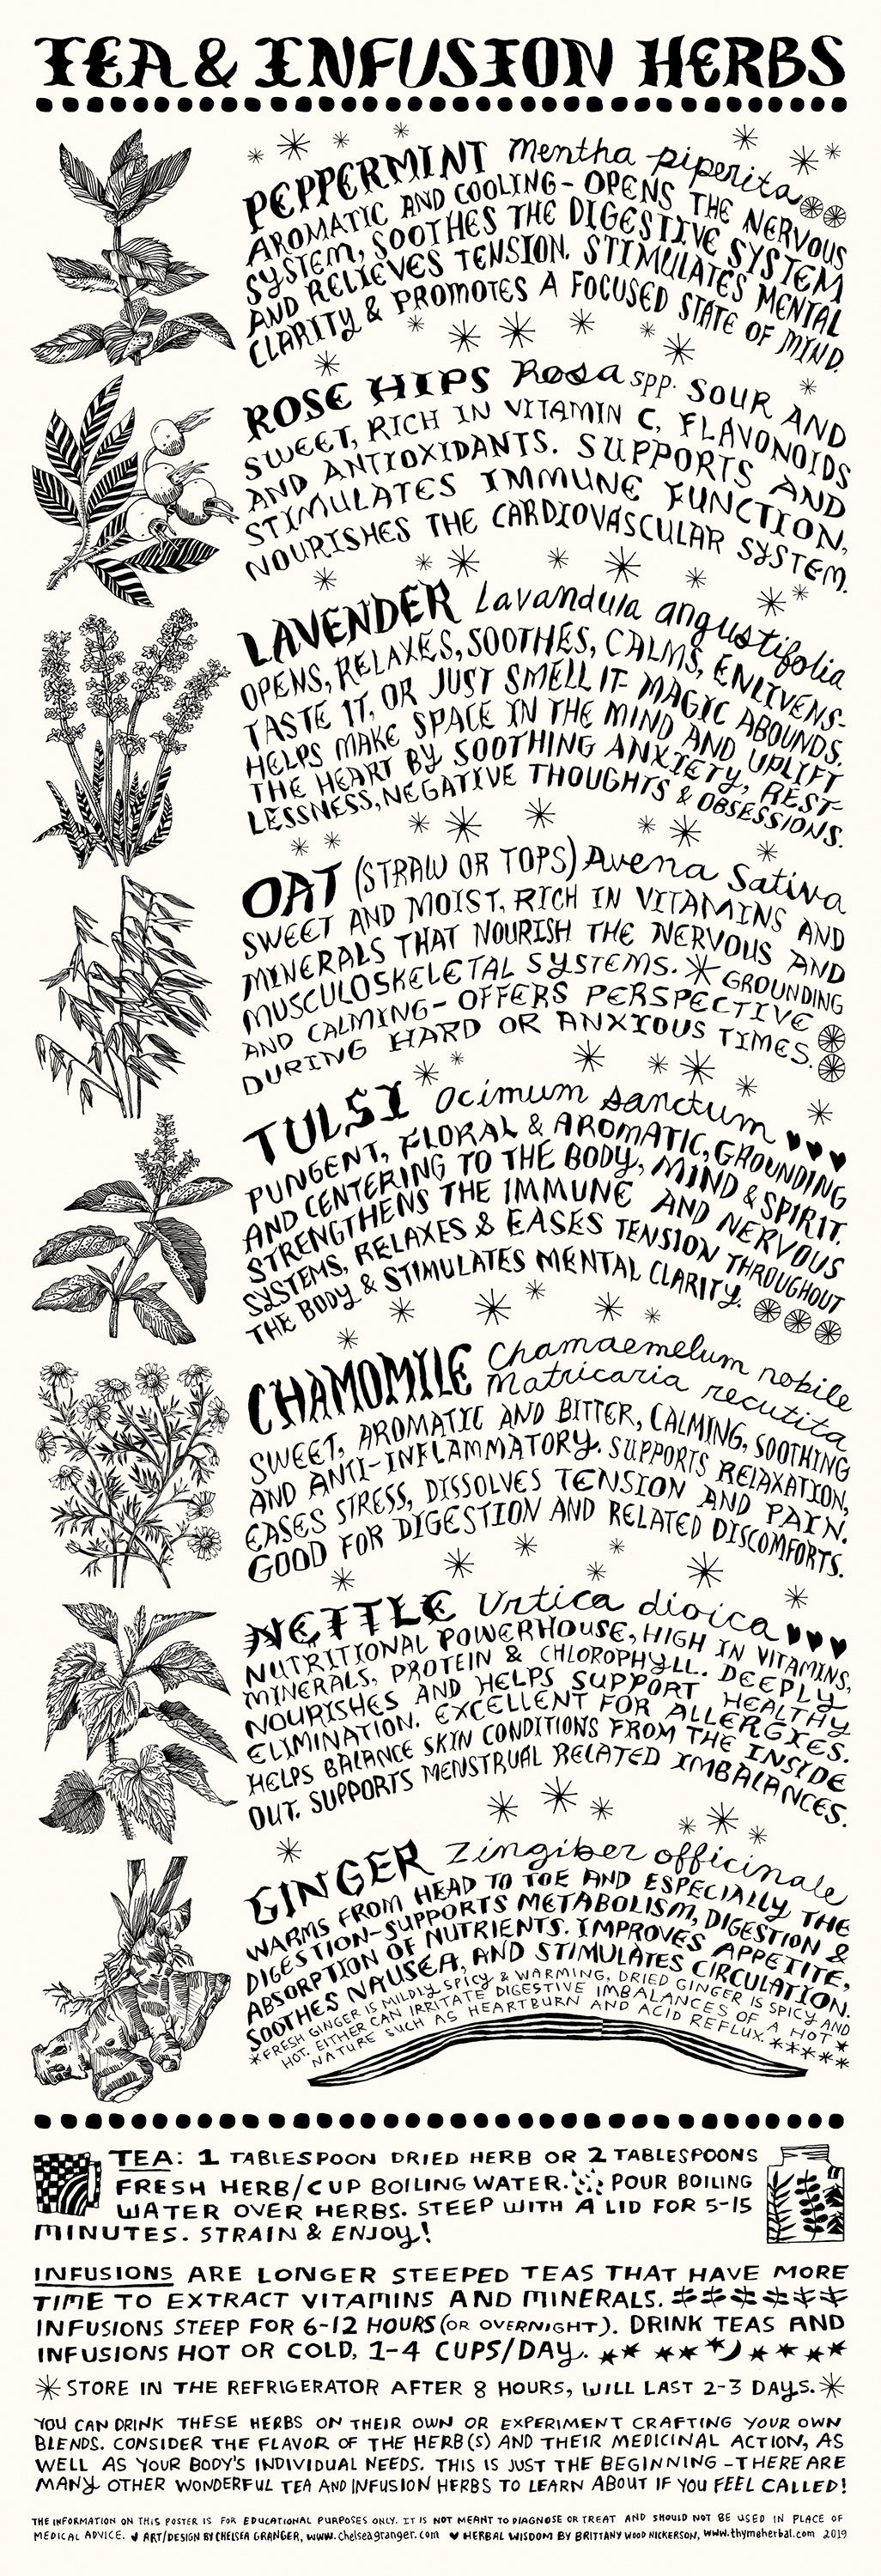 TEA & INFUSION HERBS
PEPPERMINT Mentha piperita
AROMATIC AND COOLING - OPENS THE NERVOUS
SYSTEM, SOOTHES THE DIGESTIVE SYSTEM
AND RELIEVES TENSION. STIMULATES MENTAL
CLARITY & PROMOTES A FOCUSED STATE OF MIND.
ROSE HIPS Rosa spp. SOUR AND
SWEET, RICH IN VITAMIN C, FLAVONOIDS
AND ANTIOXIDANTS. SUPPORTS AND
STIMULATES IMMUNE FUNCTION,
NOURISHES THE CARDIOVASCULAR SYSTEM.
LAVENDER Lavandula angustifolia
OPENS, RELAXES, SOOTHES, CALMS, ENLIVENS-
TASTE IT, OR JUST SMELL IT- MAGIC ABOUNDS.
HELPS MAKE SPACE IN THE MIND AND UPLIFT
THE HEART BY SOOTHING ANXIETY, REST-
LESSNESS, NEGATIVE THOUGHTS & OBSESSIONS.
OAT (STRAW OR TOPS) Avena Sativa
SWEET AND MOIST, RICH IN VITAMINS AND
MINERALS THAT NOURISH THE NERVOUS AND
MUSCULOSKELETAL SYSTEMS. GROUNDING
AND CALMING - OFFERS PERSPECTIVE
DURING HARD OR ANXIOUS TIMES.
TULSI Ocimum sanctum
PUNGENT, FLORAL & AROMATIC, GROUNDING
AND CENTERING TO THE BODY, MIND & SPIRIT.
STRENGTHENS THE IMMUNE AND NERVOUS
SYSTEMS, RELAXES & EASES TENSION THROUGHOUT
THE BODY & STIMULATES MENTAL CLARITY.
CHAMOMILE Chamaemelum nobile
Matricaria recutita
SWEET, AROMATIC AND BITTER, CALMING, SOOTHING
AND ANTI-INFLAMMATORY. SUPPORTS RELAXATION,
EASES STRESS, DISSOLVES TENSION AND PAIN.
GOOD FOR DIGESTION AND RELATED DISCOMFORTS.
NETTLE Urtica dioica
NUTRITIONAL POWERHOUSE, HIGH IN VITAMINS,
MINERALS, PROTEIN & CHLOROPHYLL. DEEPLY
NOURISHES AND HELPS SUPPORT HEALTHY
ELIMINATION. EXCELLENT FOR ALLERGIES.
HELPS BALANCE SKIN CONDITIONS FROM THE INSIDE
OUT. SUPPORTS MENSTRUAL RELATED IMBALANCES.
GINGER Zingiber officinale
WARMS FROM HEAD TO TOE AND ESPECIALLY THE
DIGESTION-SUPPORTS METABOLISM, DIGESTION &
ABSORPTION OF NUTRIENTS. IMPROVES APPETITE,
SOOTHES NAUSEA, AND STIMULATES CIRCULATION.
*FRESH GINGER IS MILDLY SPICY & WARMING, DRIED GINGER IS SPICY AND
HOT. EITHER CAN IRRITATE DIGESTIVE IMBALANCES OF A HOT
NATURE SUCH AS HEARTBURN AND ACID REFLUX.
TEA: 1 TABLESPOON DRIED HERB OR 2 TABLESPOONS
FRESH HERB/CUP BOILING WATER. POUR BOILING
WATER OVER HERBS. STEEP WITH A LID FOR 5-15
MINUTES. STRAIN & ENJOY!
INFUSIONS ARE LONGER STEEPED TEAS THAT HAVE MORE
TIME TO EXTRACT VITAMINS AND MINERALS.
INFUSIONS STEEP FOR 6-12 HOURS (OR OVERNIGHT). DRINK TEAS AND
INFUSIONS HOT OR COLD, 1-4 CUPS/DAY.
STORE IN THE REFRIGERATOR AFTER 8 HOURS, WILL LAST 2-3 DAYS.
YOU CAN DRINK THESE HERBS ON THEIR OWN OR EXPERIMENT CRAFTING YOUR OWN
BLENDS. CONSIDER THE FLAVOR OF THE HERB(S) AND THEIR MEDICINAL ACTION, AS
WELL AS YOUR BODY'S INDIVIDUAL NEEDS. THIS IS JUST THE BEGINNING - THERE ARE
MANY OTHER WONDERFUL TEA AND INFUSION HERBS TO LEARN ABOUT IF YOU FEEL CALLED!
THE INFORMATION ON THIS POSTER IS FOR EDUCATIONAL PURPOSES ONLY. IT IS NOT MEANT TO DIAGNOSE OR TREAT AND SHOULD NOT BE USED IN PLACE OF
MEDICAL ADVICE. ♥ ART/DESIGN BY CHELSEA GRANGER, www.chelseagranger.com ♥ HERBAL WISDOM BY BRITTANY WOOD NICKERSON, www.thymeherbal.com 2019